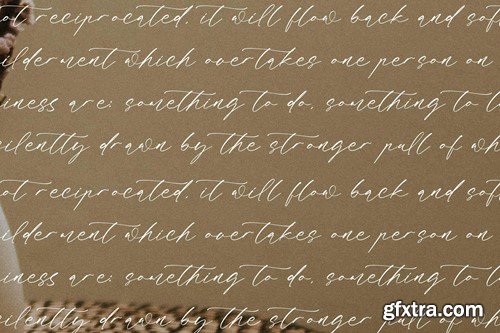 ot reciprocated, it will flow back and sof
ilderment which overtakes one person on
iness are: something to do, something to l
silently drawn by the stronger pull of wh
ot reciprocated, it will flow back and sof
ilderment which overtakes one person on
iness are: something to do, something to l
silently drawn by the stronger pull of wh
gfxtra.com